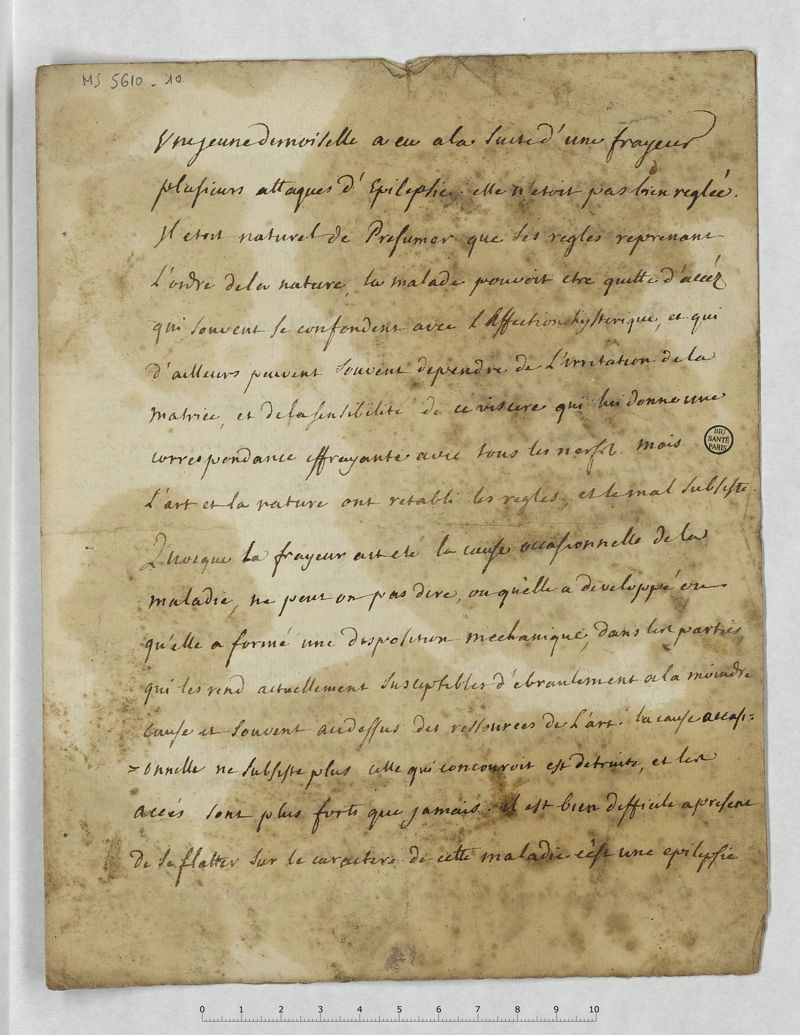 MS 5610 - 10
Une jeune demoiselle a eu a la suite d'une frayeur
plusieurs attaques d'Epilepsie. elle n'etoit pas bien reglée.
Il etoit naturel de Presumer que ses regles reprenant
L'ordre de la nature, la malade pouvoit etre quitte d'accéz
qui souvent se confondent avec l'Affection hysterique, et qui
d'ailleurs peuvent souvent dependre de L'irritation de la
matrice, et de la sensibilité de ce viscere qui lui donne une
correspondance effrayante avec tous les nerfs. mais
L'art et la nature ont retabli les regles, et le mal subsiste.
Quoique la frayeur ait eté la cause occasionnelle de la
maladie, ne peut on pas dire, ou qu'elle a developpé ou
qu'elle a formé une disposition mechanique, dans les parties,
qui les rend actuellement susceptibles d'ebranlement a la moindre
cause et souvent au dessus des ressources de L'art. la cause occasi=
=onnelle ne subsiste plus celle qui concouroit est detruite, et les
accés sont plus forts que jamais. il est bien difficile a present
de se flatter sur le caractere de cette maladie c'est une epilepsie
BIU
SANTÉ
PARIS
0 1 2 3 4 5 6 7 8 9 10